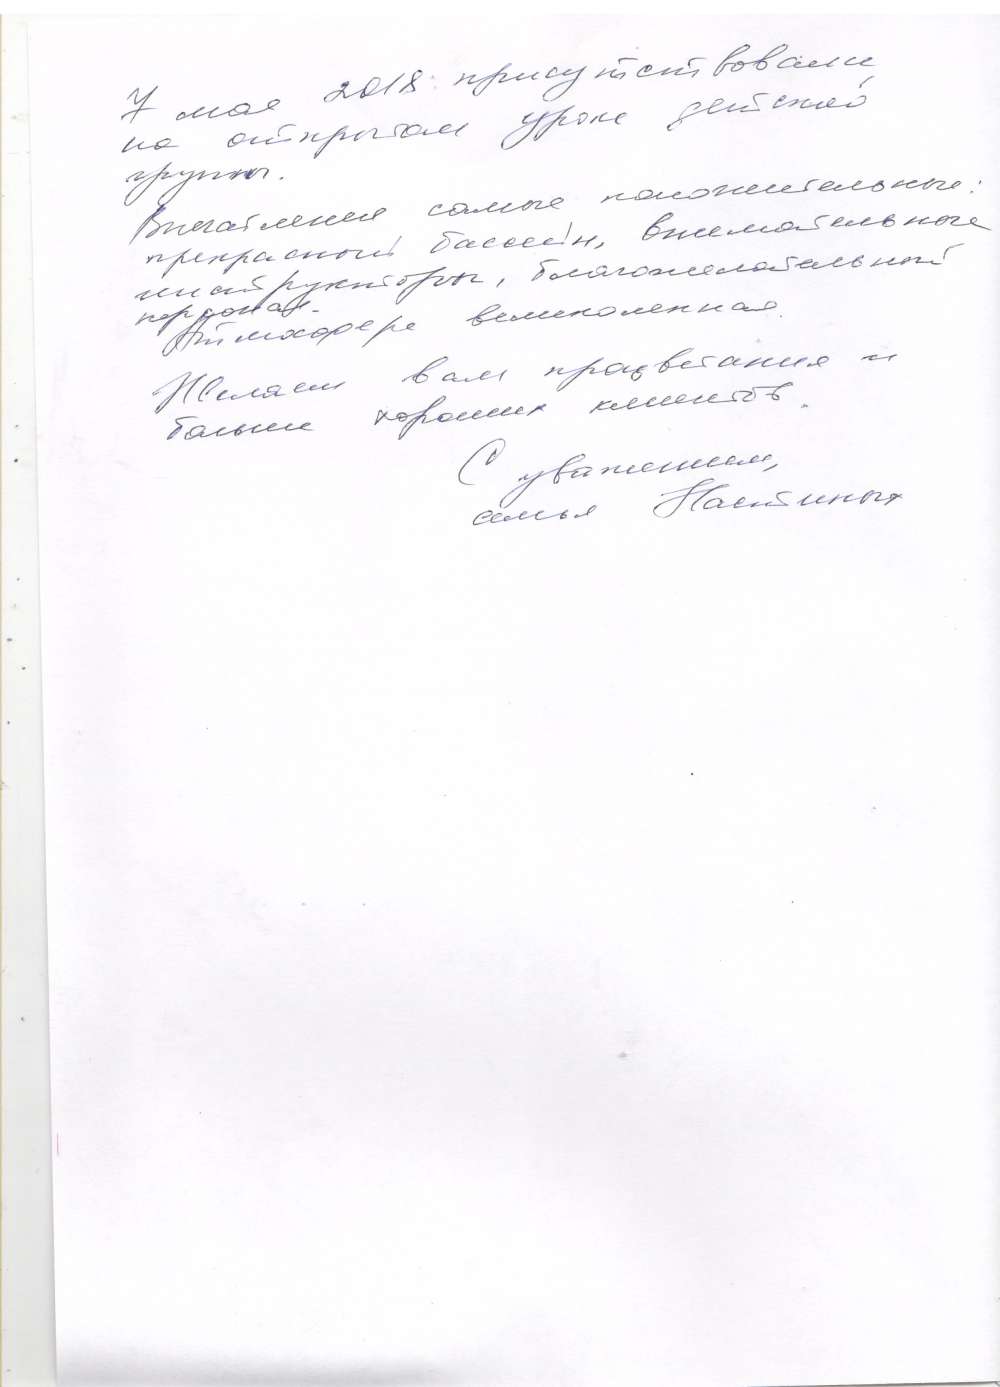 7 мая 2018 присутствовали
на открытом уроке детской
группы.
Впечатления самые положительные:
прекрасный бассейн, внимательные
инструкторы, благожелательный
персонал.
Атмосфера великолепная.
Желаем вам процветания и
больше хороших клиентов.
С уважением,
семья